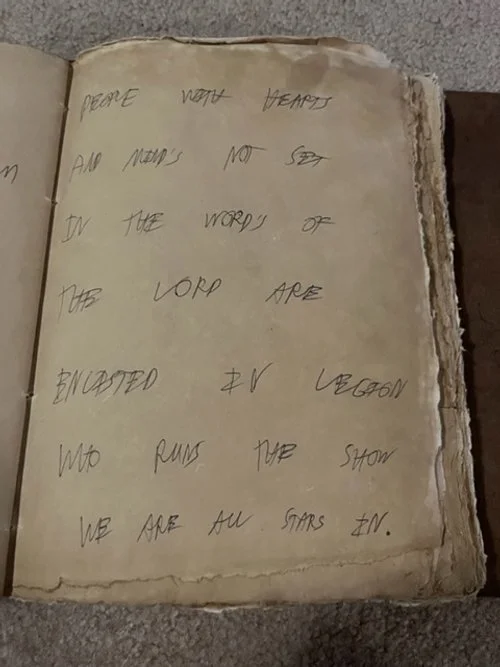 PEOPLE WITH HEARTS
AND MIND'S NOT SET
IN THE WORD'S OF
THE LORD ARE
ENLISTED IN LEGION
WHO RUNS THE SHOW
WE ARE ALL STARS IN.